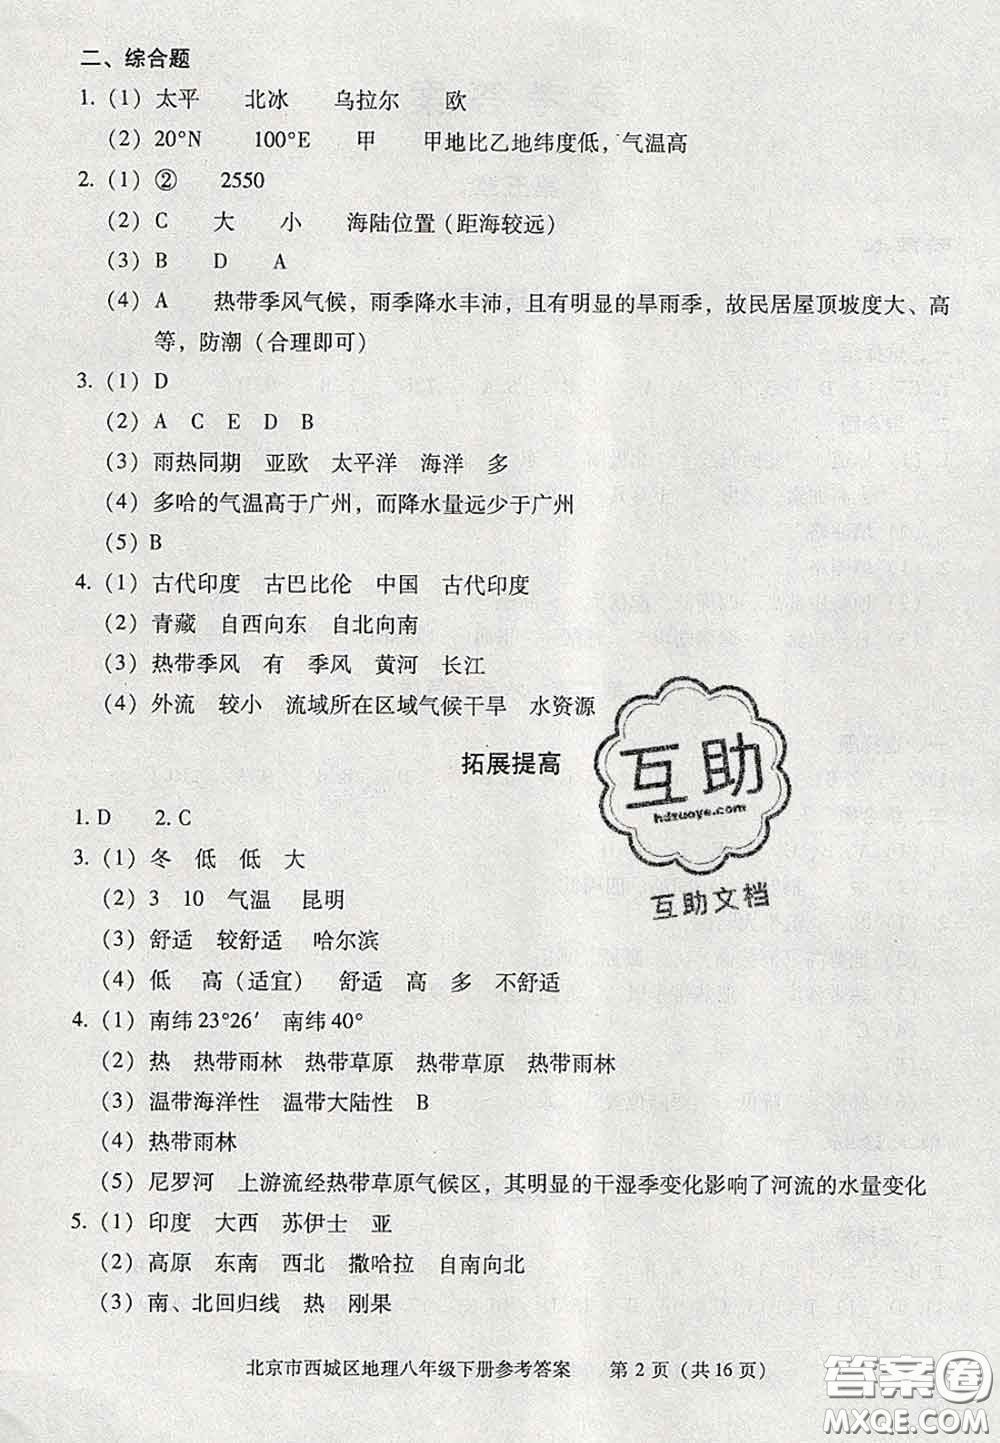 二、综合题
1.（1）太平 北冰 乌拉尔 欧
（2）20°N 100°E 甲 甲地比乙地纬度低，气温高
2.（1）② 2550
（2）C 大 小 海陆位置（距海较远）
（3）B D A
（4）A 热带季风气候，雨季降水丰沛，且有明显的旱雨季，故民居屋顶坡度大、高
等，防潮（合理即可）
3.（1）D
（2）A C E D B
（3）雨热同期 亚欧 太平洋 海洋 多
（4）多哈的气温高于广州，而降水量远少于广州
（5）B
4.（1）古代印度 古巴比伦 中国 古代印度
（2）青藏 自西向东 自北向南
（3）热带季风 有 季风 黄河 长江
（4）外流 较小 流域所在区域气候干旱 水资源
拓展提高
1. D 2. C
3.（1）冬 低 低 大
（2）3 10 气温 昆明
（3）舒适 较舒适 哈尔滨
（4）低 高（适宜） 舒适 高 多 不舒适
4.（1）南纬23°26′ 南纬40°
（2）热 热带雨林 热带草原 热带草原 热带雨林
（3）温带海洋性 温带大陆性 B
（4）热带雨林
（5）尼罗河 上游流经热带草原气候区，其明显的干湿季变化影响了河流的水量变化
5.（1）印度 大西 苏伊士 亚
（2）高原 东南 西北 撒哈拉 自南向北
（3）南、北回归线 热 刚果
北京市西城区地理八年级下册参考答案 第 2 页（共 16 页）
互助
hdzuoye.com
互助文档
答案圈
MXQE.COM